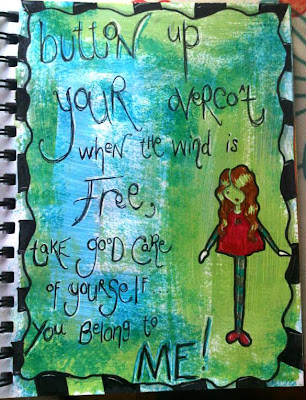 button up
your overcoat
when the wind is
Free,
take good care
of yourself
You Belong to
ME!